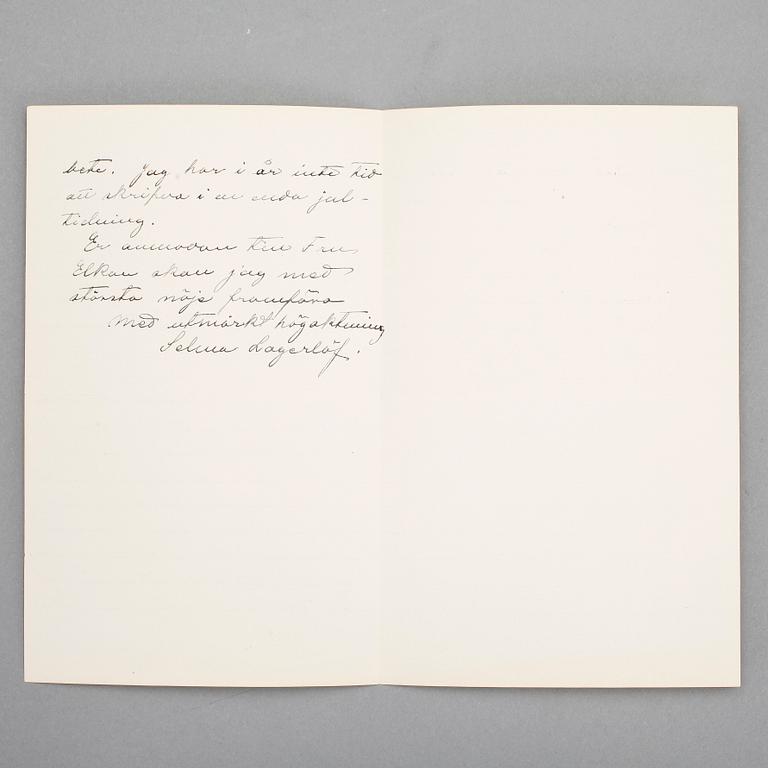 bete. Jag har i år inte tid
att skrifva i en enda jul-
tidning.
Er anmodan till Fru
Elkan skall jag med
största nöje framföra
Med utmärkt högaktning
Selma Lagerlöf.